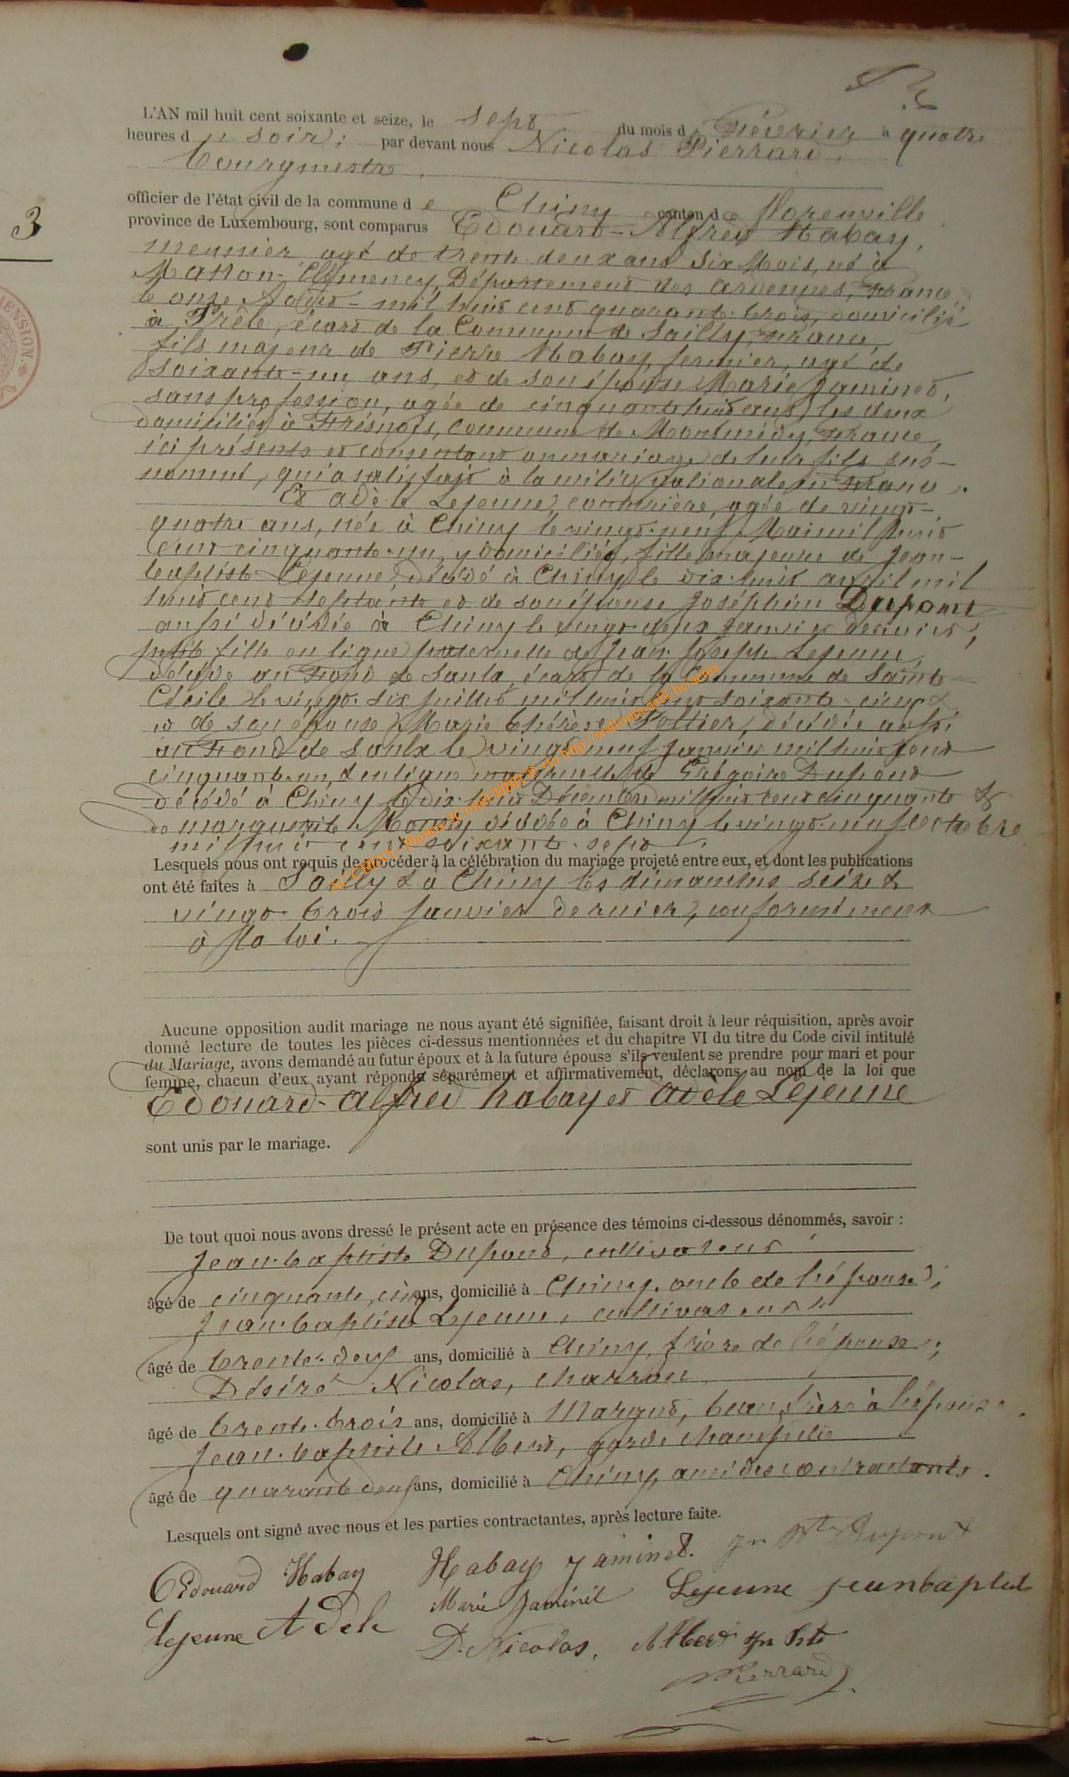 3
L'AN mil huit cent soixante et seize, le sept du mois d Février à quatre
heures d u soir; par devant nous Nicolas Pierrard,
bourgmestre,
officier de l'état civil de la commune d e Chiny canton d e florenville
province de Luxembourg, sont comparus Edouard-Alfred Habay,
meunier agé de trente deux ans six Mois, né à
Matton-Clémency, Département des ardennes, france
le onze Août mil huit cent quarante-trois, domicilié
à Prêle, écart de la Commune de Sailly, france,
fils majeur de Pierre Habay, fermier, agé de
soixante-un ans, et de son épouse Marie Jaminet,
sans profession, agée de cinquante huit ans, les deux
domiciliés à Frésnois, commune de Montmédy, france,
ici présents et consentant au mariage de leur fils sus-
nommé, qui a satisfait à la milice nationale en france.
Et Adèle Lejeune, couturière, agée de vingt-
quatre ans, née à Chiny le vingt-neuf Mai mil huit
cent cinquante-un, y domiciliée, fille majeure de Jean-
baptiste Lejeune décédé à Chiny le dix-huit avril mil
huit cent septante et de son épouse Joséphine Dupont
aussi décédée à Chiny le vingt-deux Janvier dernier,
petite fille en ligne paternelle de Jean Joseph Lejeune,
décédé au Fond de Saulx, écart de la Commune de Sainte-
Cécile le vingt-six juillet mil huit cent soixante-cinq
et de son épouse Marie thérèse Pottier, décédée aussi
au Fond de Saulx le vingt neuf Janvier mil huit cent
cinquante-un, & en ligne maternelle de Grégoire Dupont
décédé à Chiny le dix-huit Décembre mil huit cent cinquante &
de marguerite décédée à Chiny le vingt-neuf Octobre
mil huit cent soixante-sept.
Lesquels nous ont requis de procéder à la célébration du mariage projeté entre eux, et dont les publications
ont été faites à Sailly & à Chiny les dimanches seize &
vingt-trois Janvier dernier, conformément
à la loi.
Aucune opposition audit mariage ne nous ayant été signifiée, faisant droit à leur réquisition, après avoir
donné lecture de toutes les pièces ci-dessus mentionnées et du chapitre VI du titre du Code civil intitulé
du Mariage, avons demandé au futur époux et à la future épouse s'ils veulent se prendre pour mari et pour
femme, chacun d'eux ayant répondu séparément et affirmativement, déclarons au nom de la loi que
Edouard-Alfred habay et Adèle Lejeune
sont unis par le mariage.
De tout quoi nous avons dressé le présent acte en présence des témoins ci-dessous dénommés, savoir :
Jean-baptiste Dupont, cultivateur
âgé de cinquante cinq ans, domicilié à Chiny, oncle de l'épouse;
Jean-baptiste Lejeune, cultivateur
âgé de trente-deux ans, domicilié à Chiny, frère de l'épouse;
Désiré Nicolas, charron
âgé de trente-trois ans, domicilié à Margut, beau frère à l'épouse.
Jean-baptiste Albert, garde champêtre
âgé de quarante deux ans, domicilié à Chiny, ami des contractants.
Lesquels ont signé avec nous et les parties contractantes, après lecture faite.
Edouard Habay Habay Jaminet. Jn Bte Dupont
Lejeune Adele Marie Jaminet Lejeune jeanbaptist
D. Nicolas. Albert Jn Bte
Pierrard